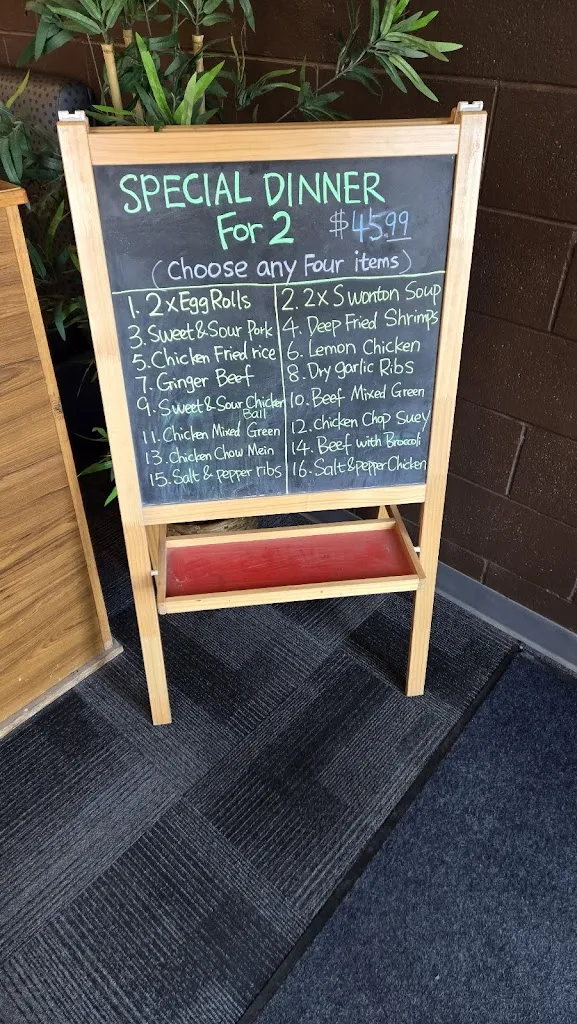 SPECIAL DINNER
For 2 $45.99
(choose any Four items)
1. 2x Egg Rolls
2. 2x S wonton Soup
3. Sweet & Sour Pork
4. Deep Fried Shrimps
5. Chicken Fried rice
6. Lemon Chicken
7. Ginger Beef
8. Dry garlic Ribs
9. Sweet & Sour Chicken
Ball
10. Beef Mixed Green
11. Chicken Mixed Green
12. chicken Chop Suey
13. Chicken Chow Mein
14. Beef with Broccoli
15. Salt & pepper ribs
16. Salt & pepper Chicken